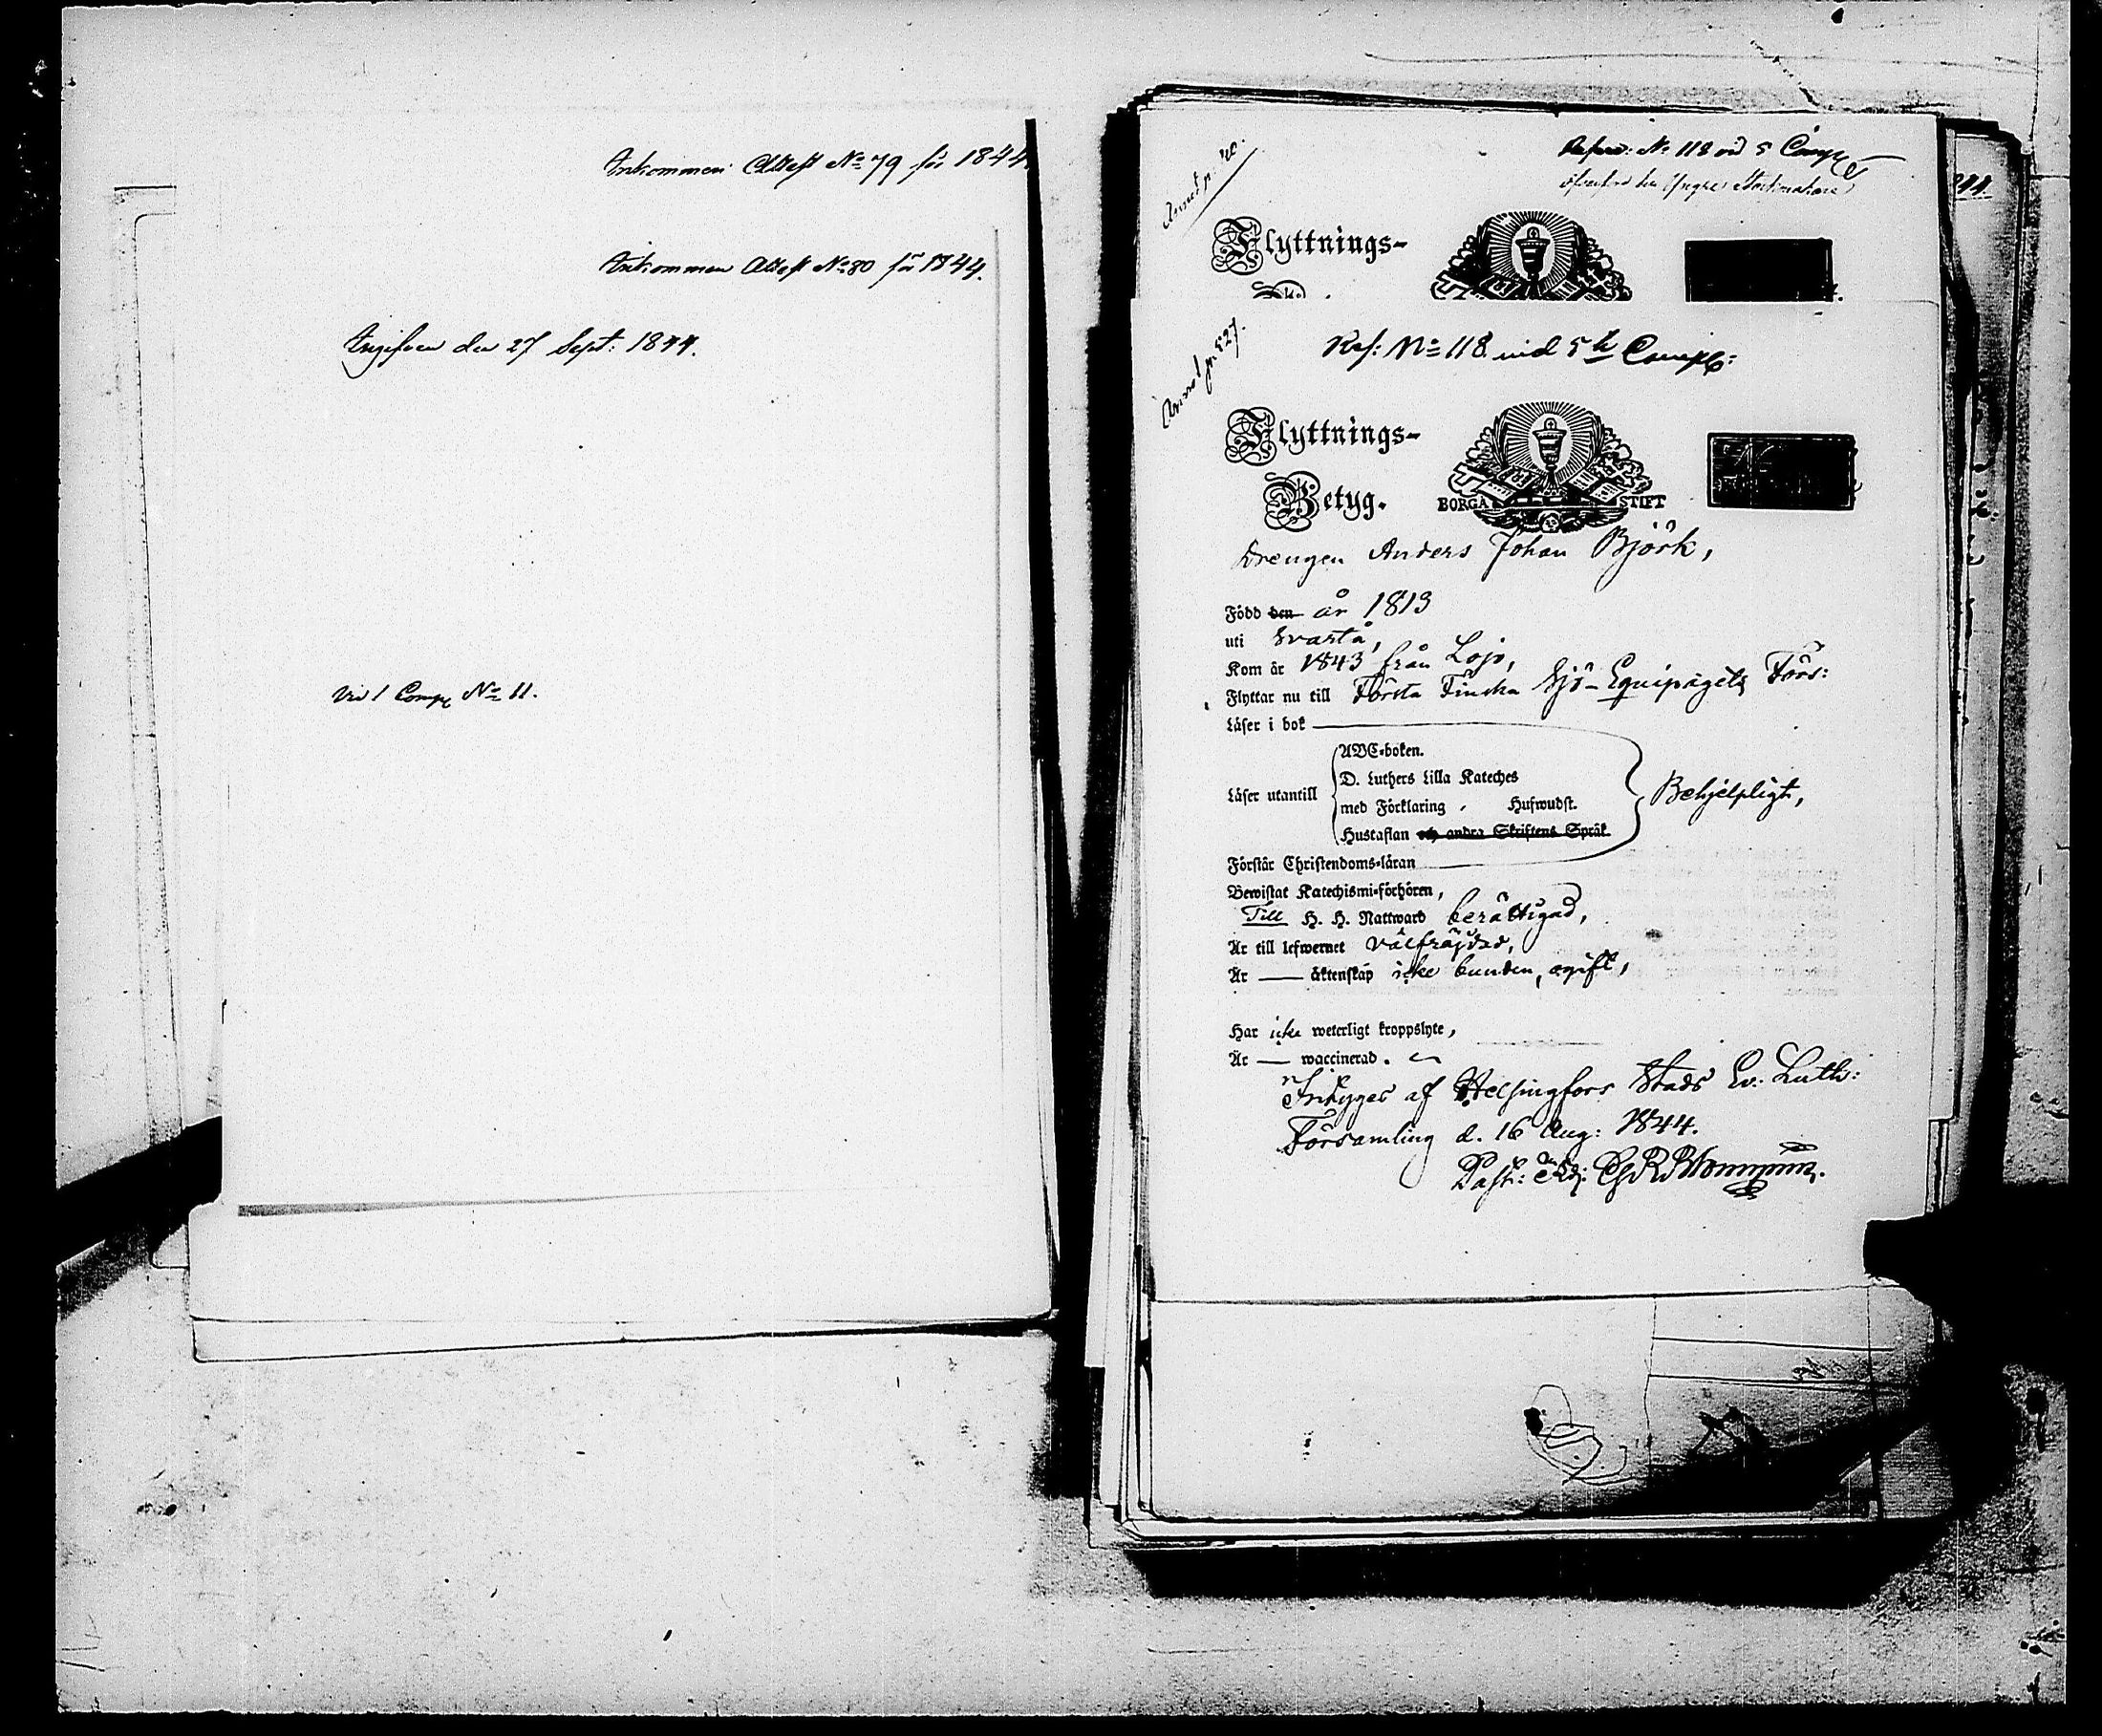 Inkommen Attest No 79 för 1844.
Inkommen Attest No 80 för 1844.
Angifven den 27 Sept: 1844.
Vid 1 Comp No 11.
No 118 vid 5 Comp
Yngre
Flyttnings-
244.
Ref: No 118 vid 5te Comp:
Flyttnings-
Betyg.
BORGÅ STIFT
Drengen Anders Johan Björk,
Född den år 1813
uti Svartå,
Kom år 1843 från Lojo,
Flyttar nu till Första Finska Sjö-Equipagets Förs:
Läser i bok
Läser utantill
ABC-boken.
D. Luthers Lilla Kateches
med Förklaring, Hufwudst.
Hustaflan och andra Skriftens Språk
Behjelpligt,
Förstår Christendoms-läran
Bewistat Katechismi-förhören,
Till H. H. Nattward berättigad,
Är till lefwernet välfräjdad,
Är — äktenskap icke bunden, ogift,
Har icke weterligt kroppslyte,
Är — waccinerad.
Intygas af Helsingfors Stads Ev: Luth:
Församling d. 16 Aug: 1844.
Past: Adj: